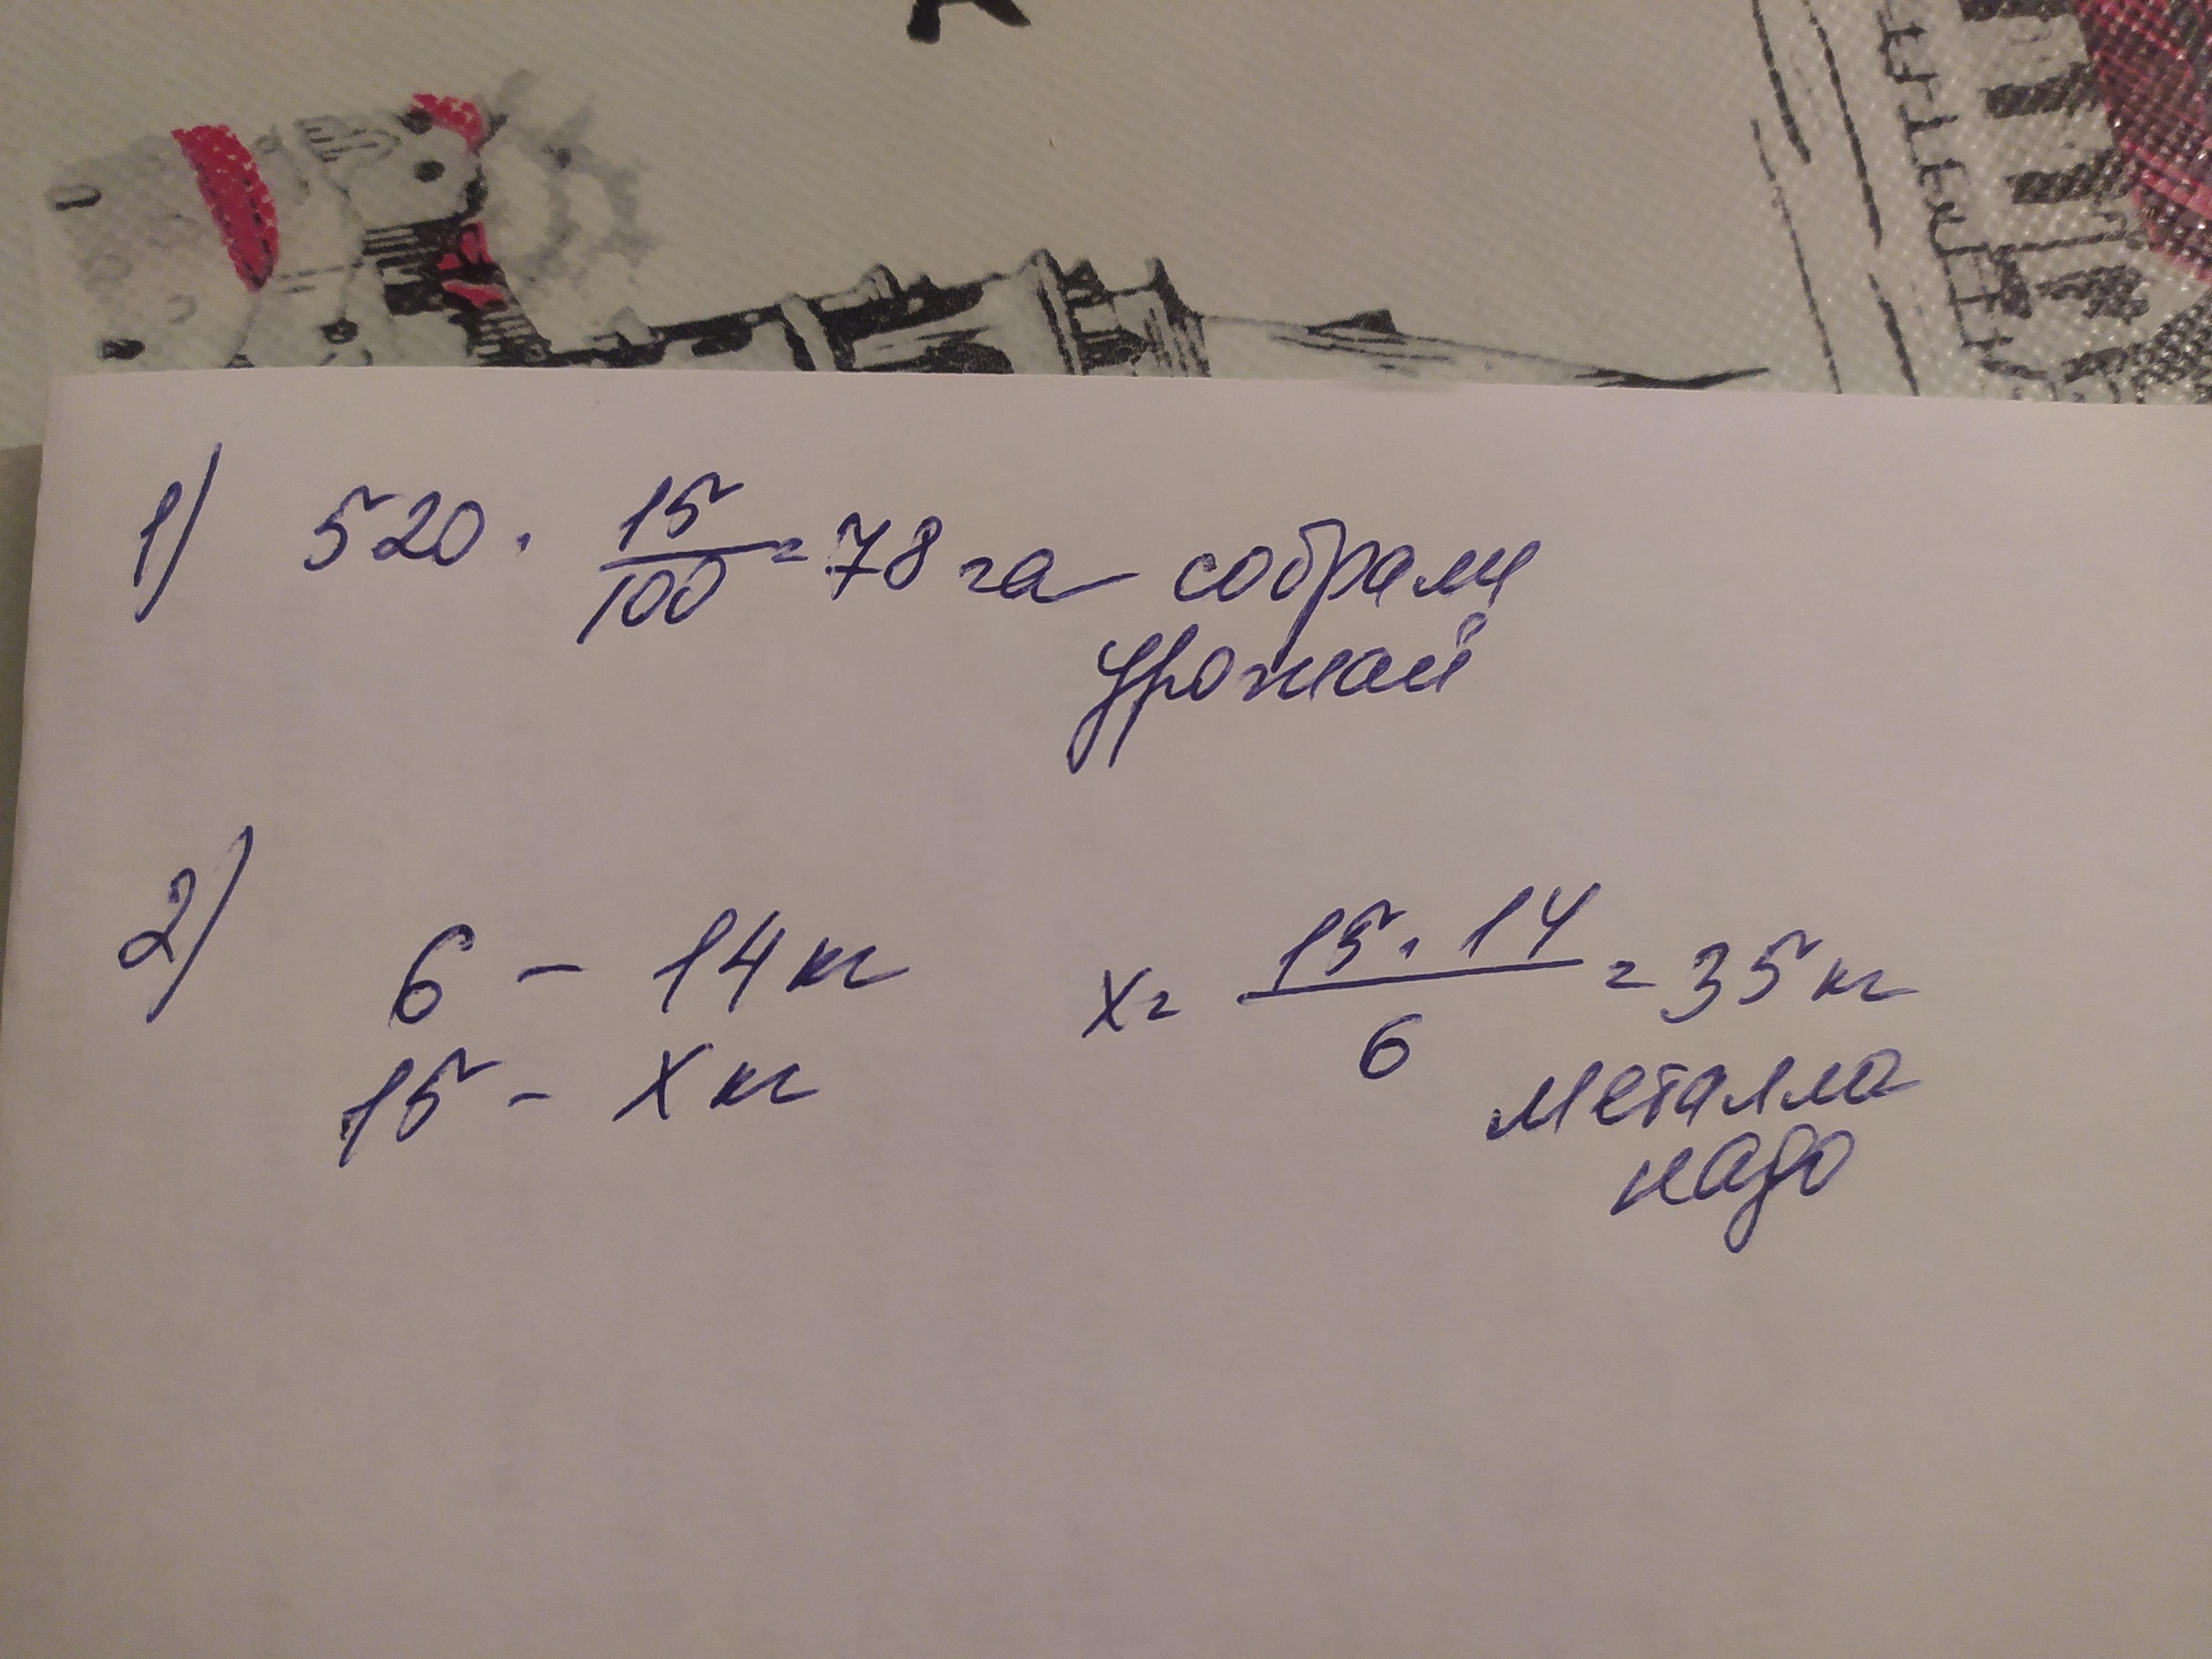 1) 520 · 15/100 = 78 га собрали
урожай
2) 6 – 14 кг x = 15 · 14 / 6 = 35 кг
15 – x кг металла
надо